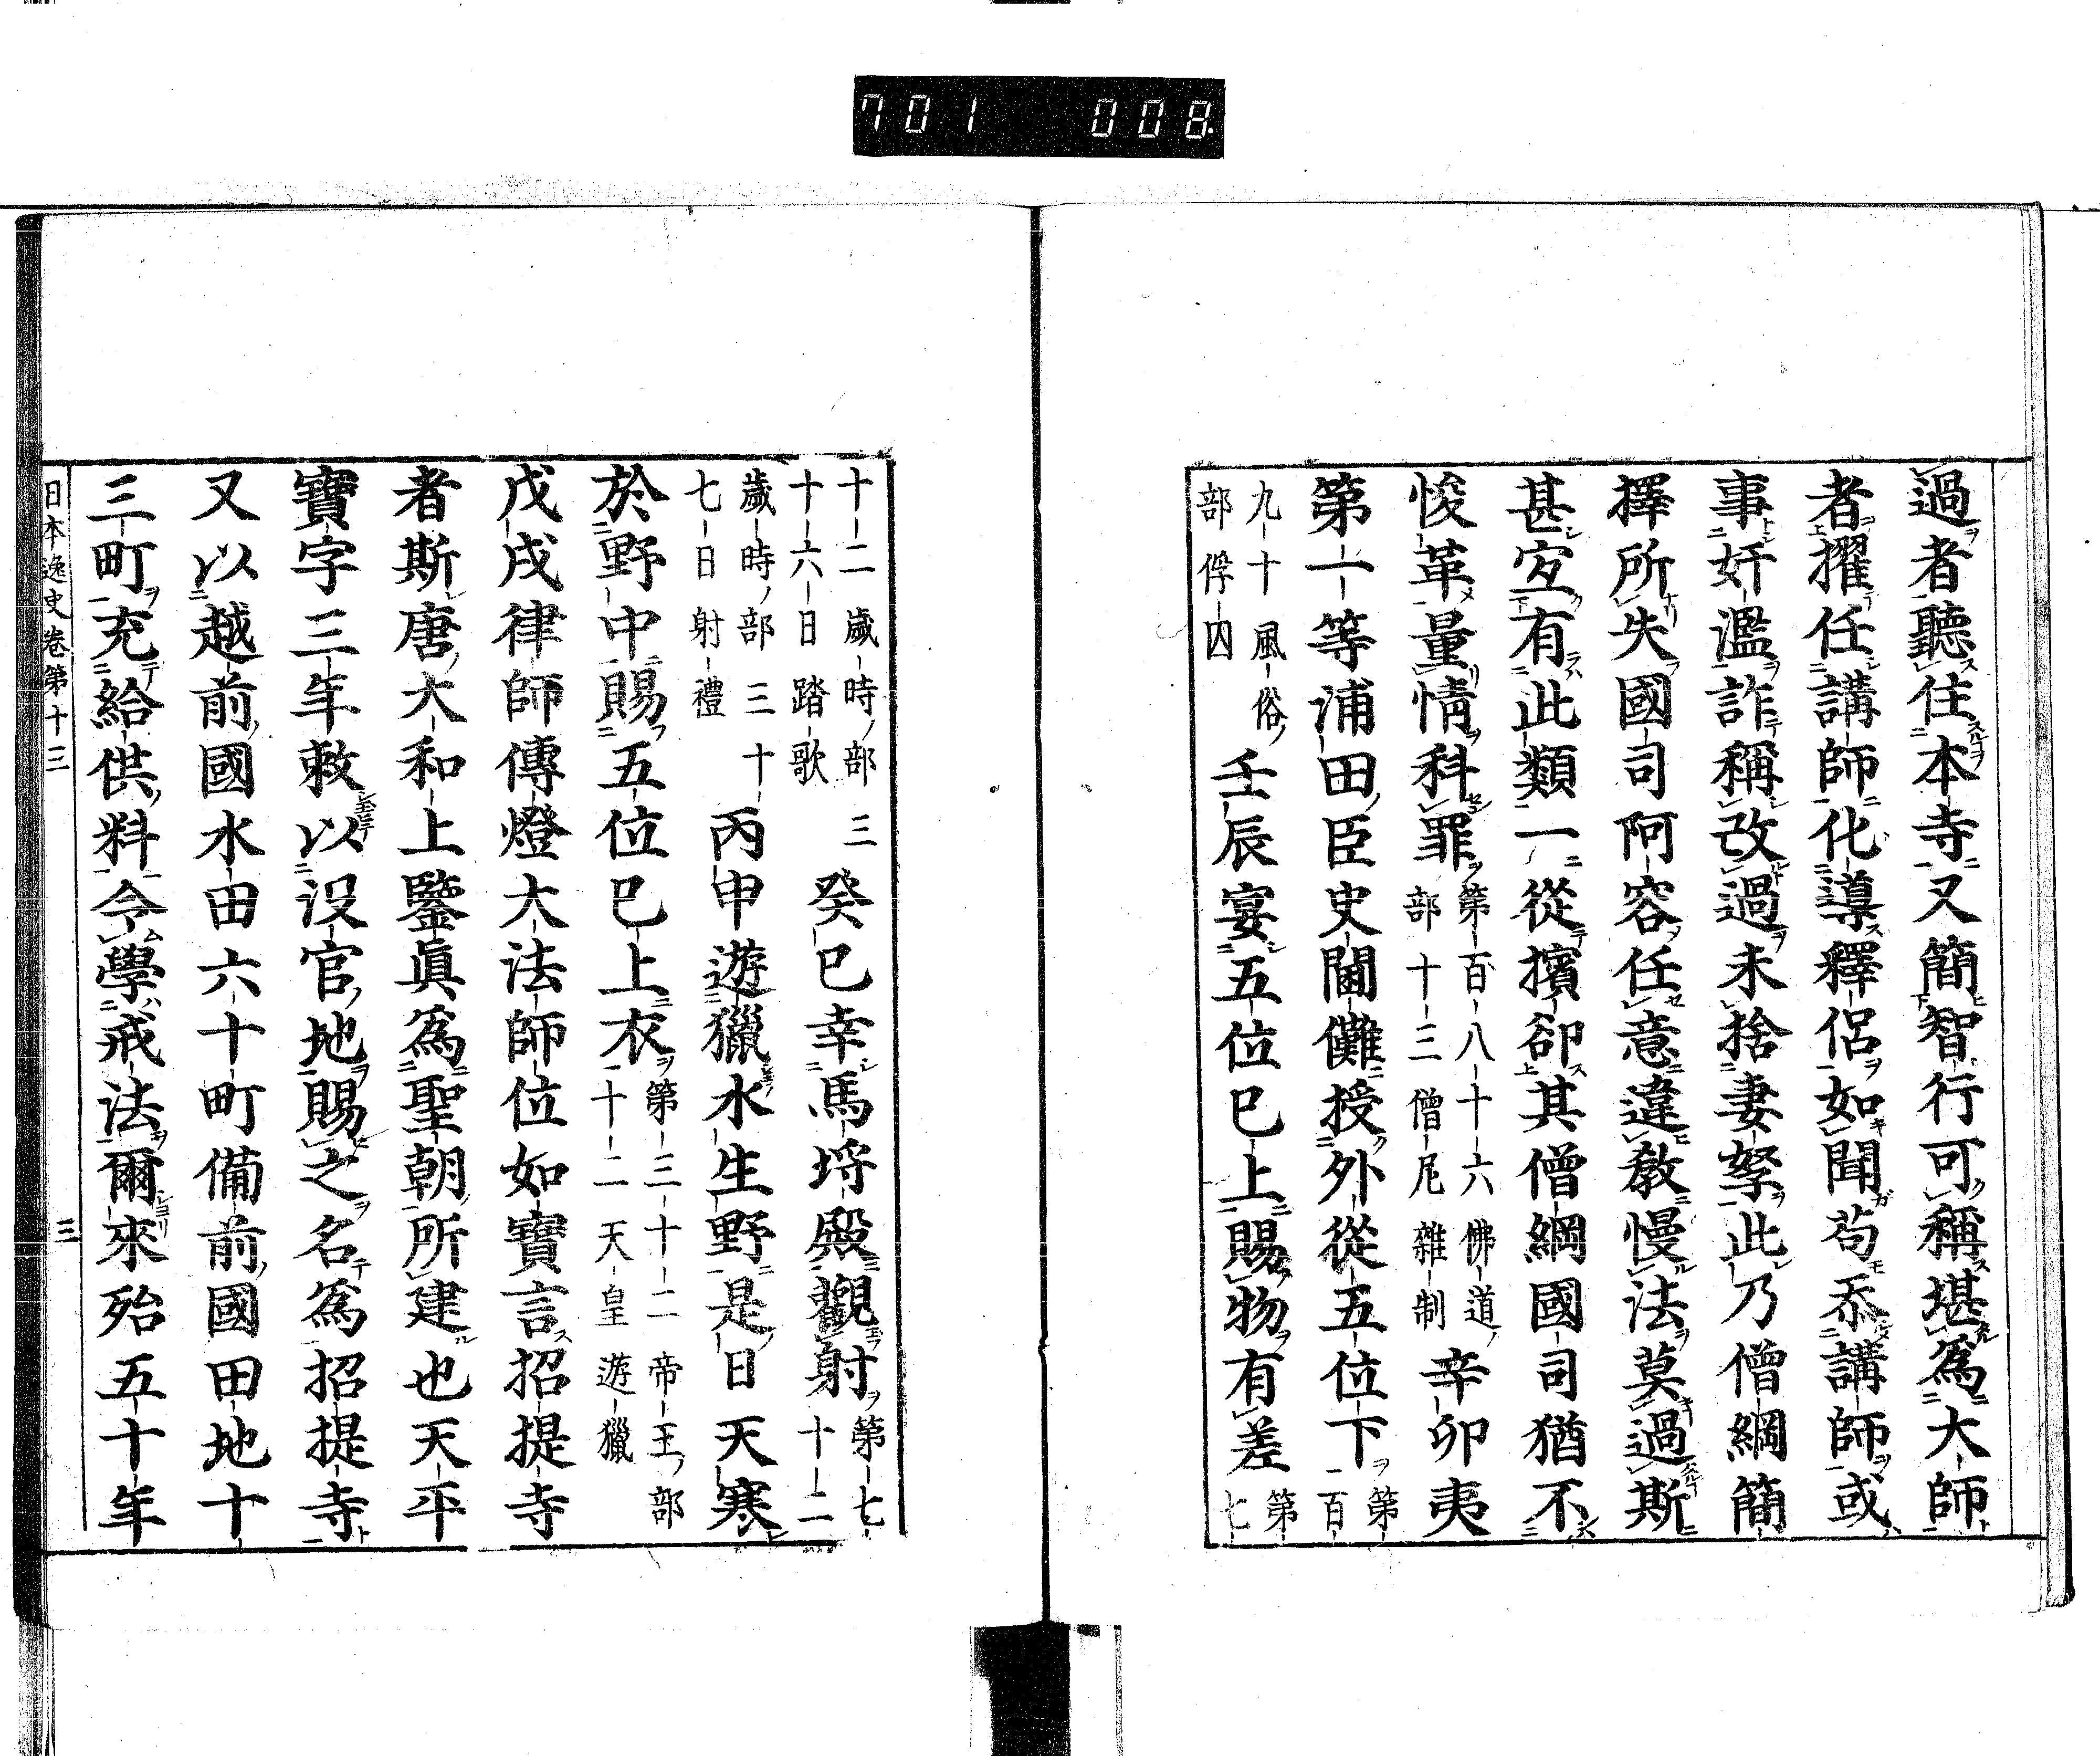 701 008
過者聽住本寺又簡智行可稱堪爲大師
者擢任講師化導釋侶如聞苟忝講師或
事奸濫詐稱改過未捨妻孥此乃僧綱簡
擇所失國司阿容任意違教慢法莫過斯
甚宐有此類一從擯卻其僧綱國司猶不
悛革量情科罪
第百八十六佛道
部十三僧尼雜制
辛卯夷
第一等浦田臣史閫儺授外從五位下
第
二百
九十風俗
部俘囚
壬辰宴五位已上賜物有差
第
七
十二歲時部三
十六日踏歌
癸巳幸馬埒殿觀射
第七
十二
歲時部三十
七日射禮
丙申遊獵水生野是日天寒
於野中賜五位已上衣
第三十二帝王部
十二天皇遊獵
戊戌律師傳燈大法師位如寶言招提寺
者斯唐大和上鑒眞爲聖朝所建也天平
寶字三年敕以沒官地賜之名爲招提寺
又以越前國水田六十町備前國田地十
三町充給供料令學戒法爾來殆五十年
日本逸史卷第十三
三